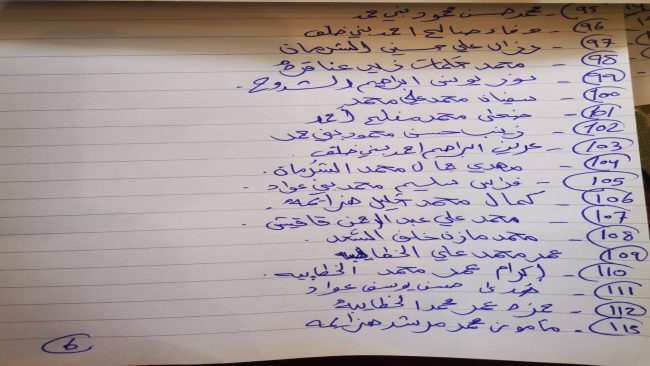 95 - محمد حسن محمود بني حمد
96 - وفاء صالح احمد بني خلف
97 - رزان علي حسين الشرمان
98 - محمد زايد عناقرة
99 - نور يونس ابراهيم الشدوح
100 - محمد علي محمد
101 - ضحى محمد مفلح احمد
102 - زينب حسن محمود بني حمد
103 - عرين ابراهيم احمد بني خلف
104 - مهدي جمال محمد الشرمان
105 - فراس سليم محمد بني عواد
106 - كمال محمد خليل هزايمه
107 - محمد علي عبد الرحمن
108 - محمد مازن خلف
109 عمر محمد علي الخطايبه
110 - إكرام عمر محمد الخطايبه
111 - هدى حسن يوسف عواد
112 - حمزه عمر محمد الخطايبة
115 - مأمون محمد مرشد هزايمه
6